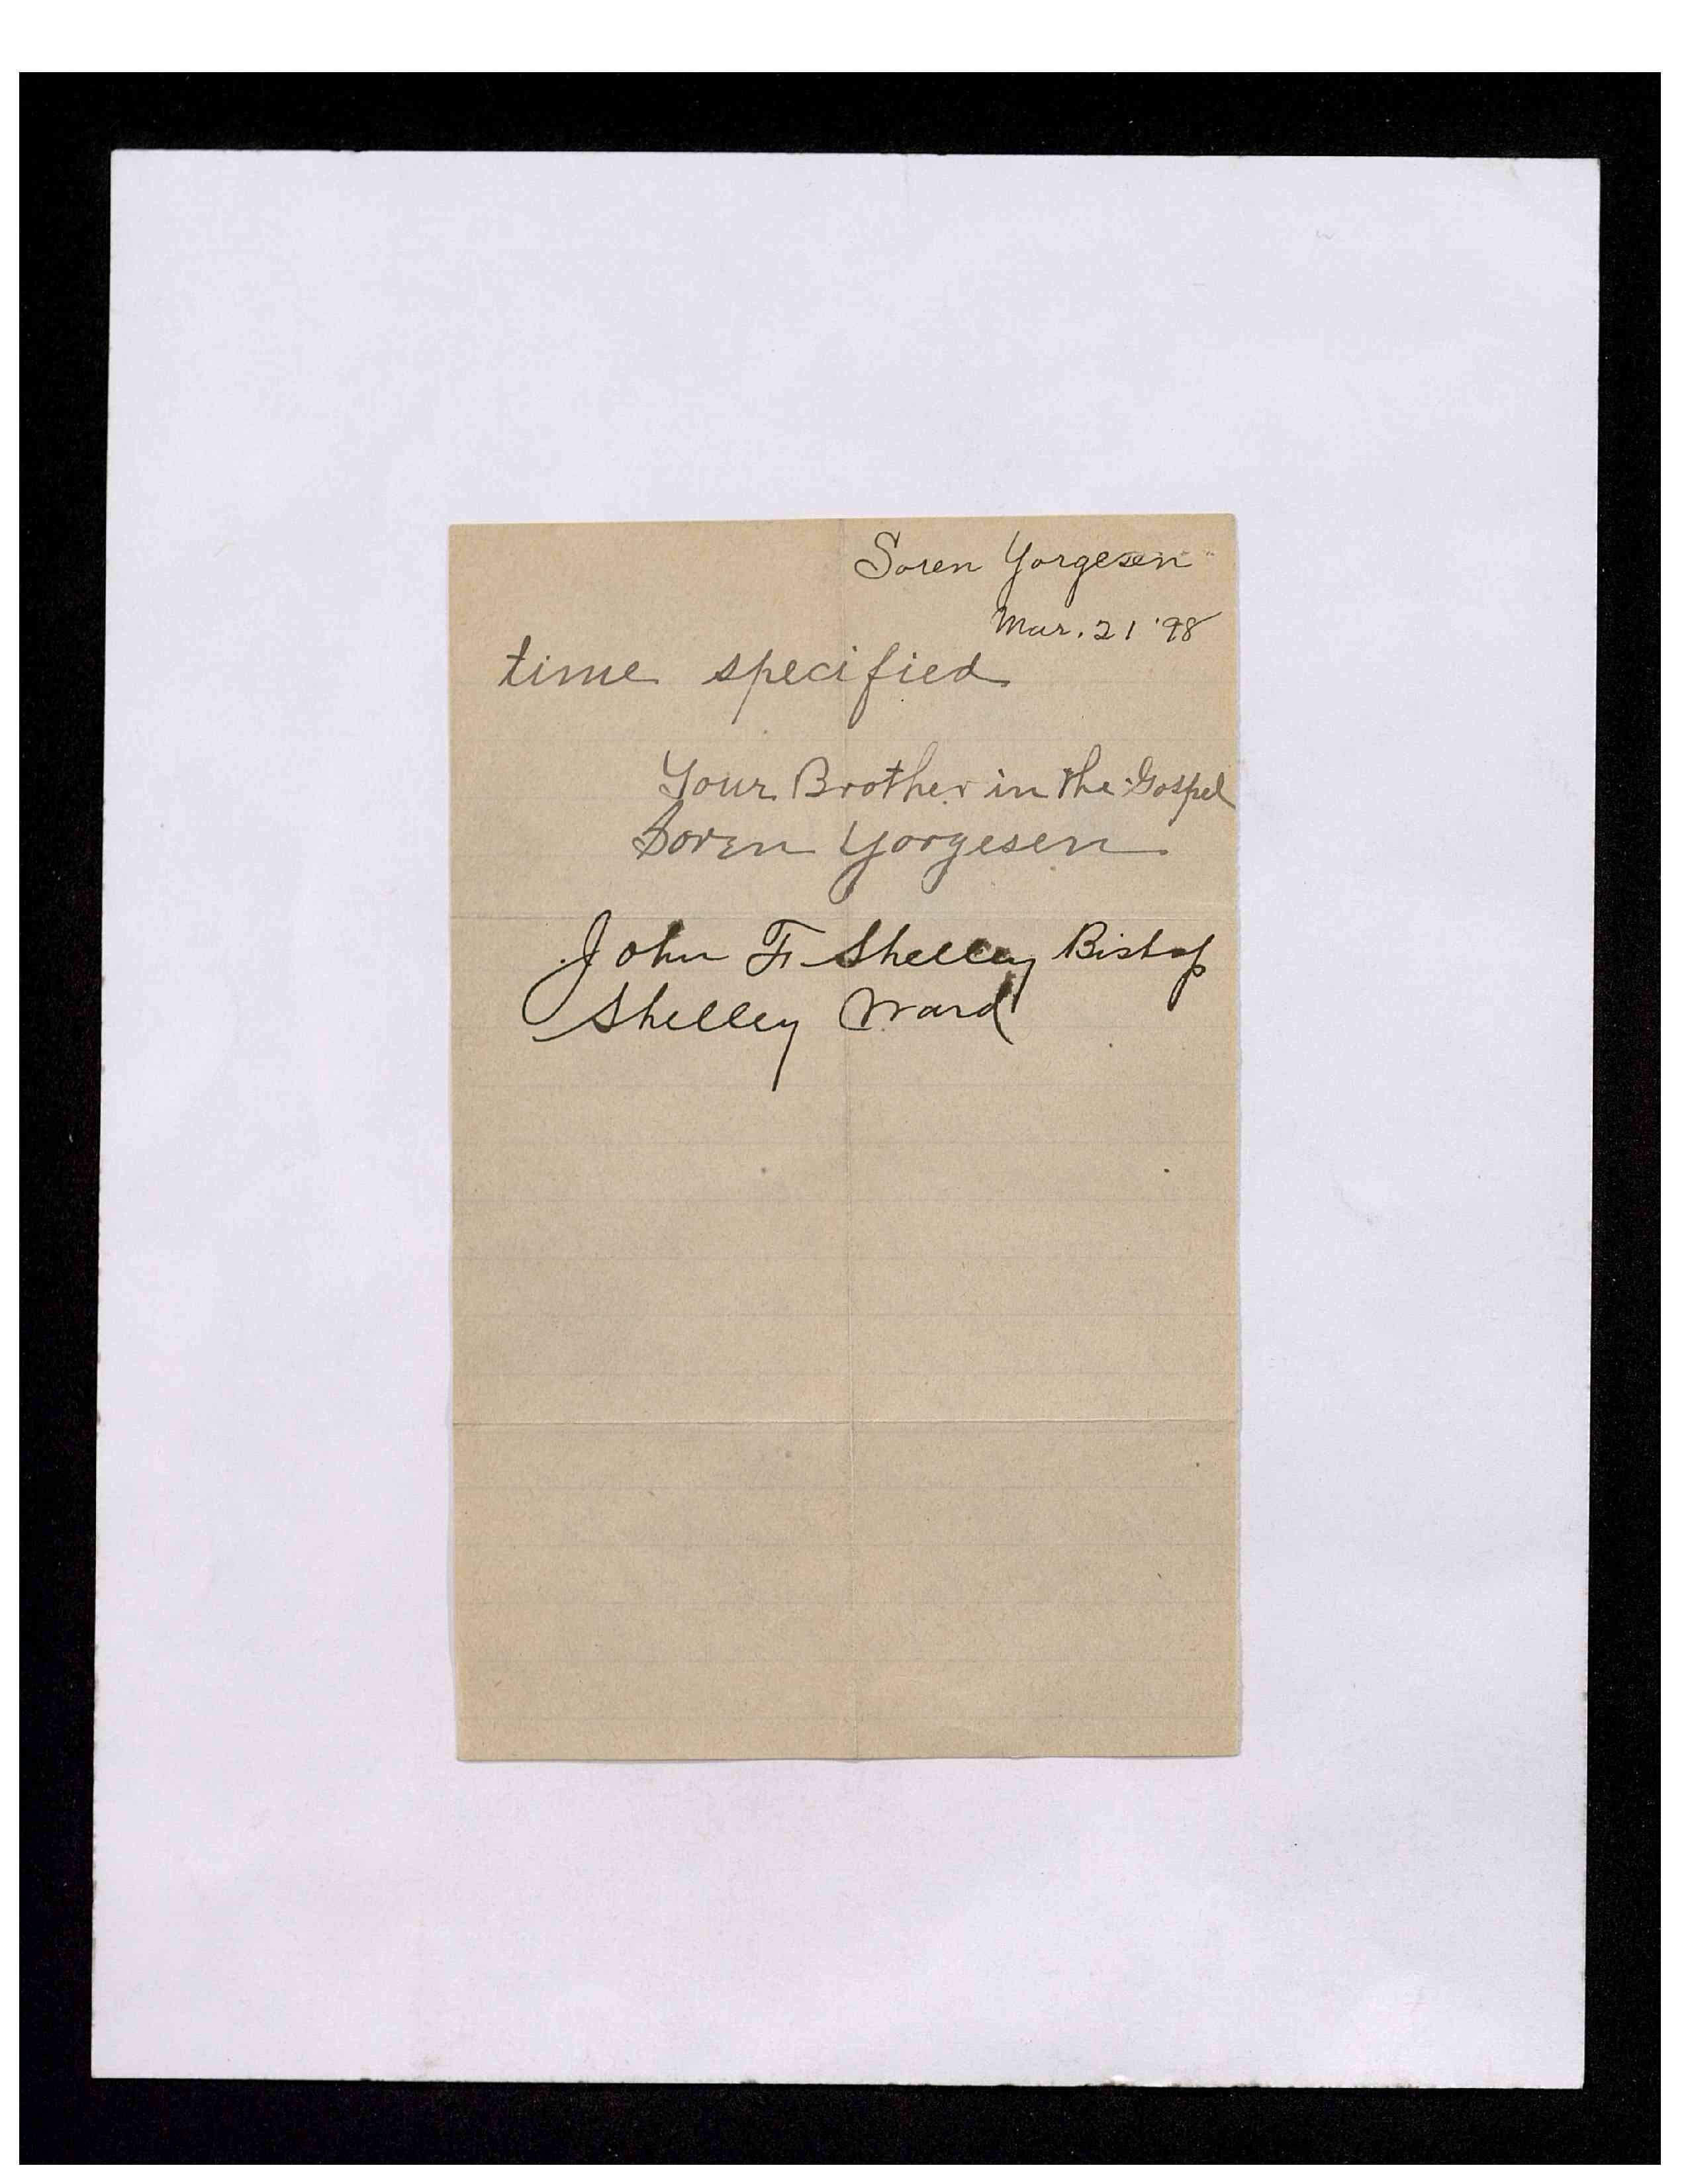 Soren Yorgesen
Mar. 21 '98
time specified
Your Brother in the Gospel
Soren Yorgesen
John F Shelley Bishop
Shelley Ward